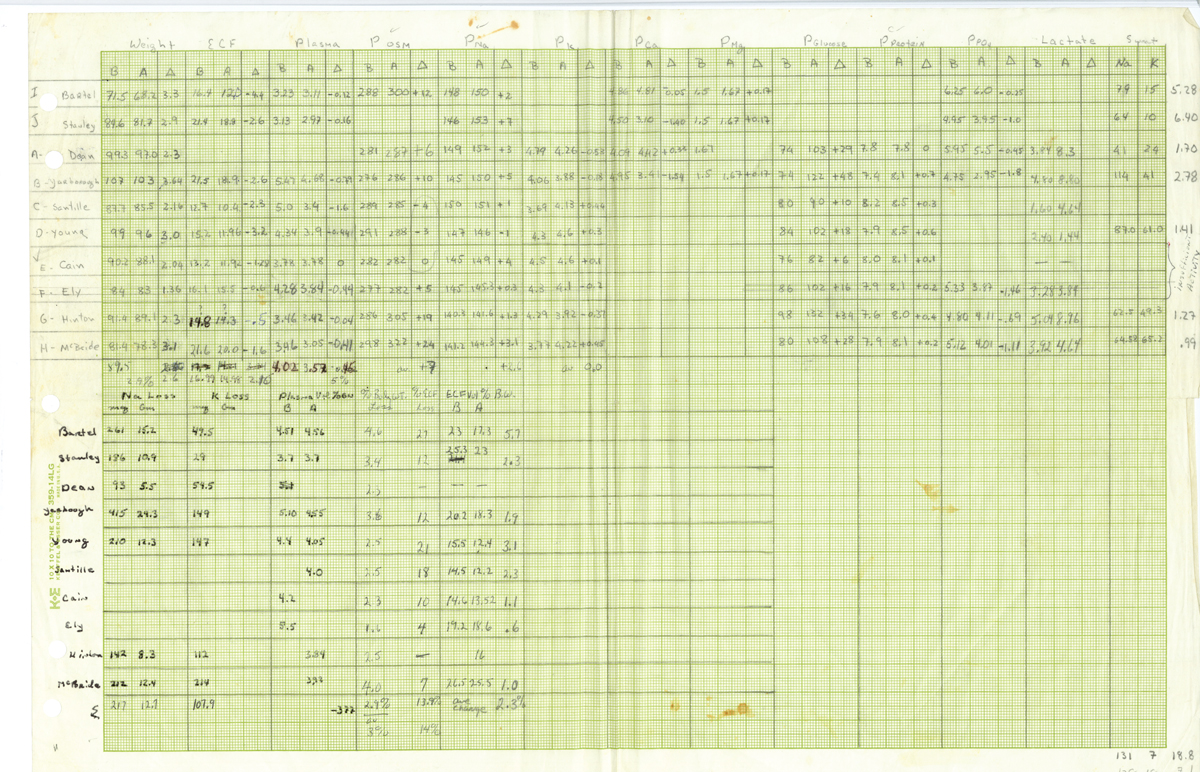 Weight ECF Plasma POSM PNa PK PCa PMg PGlucose PProtein PPO4 Lactate Sweat
B A Δ B A Δ B A Δ B A Δ B A Δ B A Δ B A Δ B A Δ B A Δ B A Δ B A Δ B A Δ Na K
I Bartel 71.5 68.2 3.3 16.4 3.23 3.11 -0.12 288 300 +12 148 150 +2 4.86 4.81 -0.05 1.5 1.67 +0.17 6.25 6.0 -0.25 79 15 5.28
J Stanley 84.6 81.7 2.9 21.4 18.8 -2.6 3.13 2.97 -0.16 146 153 +7 4.50 3.10 -1.40 1.5 1.67 +0.17 4.95 3.95 -1.0 64 10 6.40
A- Dean 99.3 97.0 2.3 281 287 +6 149 152 +3 4.79 4.26 -0.53 4.09 4.42 +0.33 1.67 74 103 +29 7.8 7.8 0 5.95 5.5 -0.45 3.04 8.3 41 24 1.70
B-Yarborough 107 103 3.64 21.5 18.9 -2.6 5.47 4.68 -0.79 276 286 +10 145 150 +5 4.06 3.88 -0.18 4.95 3.41 -1.54 1.5 1.67 +0.17 74 122 +48 7.4 8.1 +0.7 4.75 2.95 -1.8 4.80 8.80 114 41 2.78
C-Santille 87.7 85.5 2.16 12.7 10.4 -2.3 5.0 3.4 -1.6 289 285 -4 150 151 +1 3.69 4.13 +0.44 80 90 +10 8.2 8.5 +0.3 1.60 4.64
D-Young 99 96 3.0 15.2 11.96 -3.2 4.34 3.9 -0.44 291 288 -3 147 146 -1 4.3 4.6 +0.3 84 102 +18 7.9 8.5 +0.6 2.40 1.44 87.0 61.0 1.41
E- Cain 90.2 88.1 2.04 13.2 11.92 -1.28 3.78 3.78 0 282 282 0 145 149 +4 4.5 4.6 +0.1 76 82 +6 8.0 8.1 +0.1 — —
F- Ely 84 83 1.36 16.1 15.5 -0.6 4.28 3.84 -0.44 277 282 +5 145 145.3 +0.3 4.3 4.1 -0.2 86 102 +16 7.9 8.1 +0.2 5.33 3.87 -1.46 3.28 3.84
G- Hinton 91.4 89.1 2.3 14.8 14.3 -.5 3.46 3.42 -0.04 286 305 +19 140.3 141.6 +1.3 4.29 3.92 -0.37 98 132 +34 7.6 8.0 +0.4 4.80 4.11 -.69 5.04 8.96 62.5 49.3 1.27
H- McBride 81.4 78.3 3.1 21.6 20.0 -1.6 3.46 3.05 -0.41 298 322 +24 141.2 144.3 +3.1 3.77 4.22 +0.45 80 108 +28 7.9 8.1 +0.2 5.12 4.01 -1.11 3.92 4.64 54.58 65.2 .99
4.02 3.57 -0.45 av +7 +2.6 av 0.0
2.9% 2.6 16.99 14.98 2.16 5%
Na Loss K Loss Plasma Vol %BW % Body Wt. Loss % ECF Loss ECF Vol % B.W.
meq Gms meq Gms B A B A
Bartel 261 15.2 49.5 4.51 4.56 4.6 27 23 17.3 5.7
Stanley 186 10.9 29 3.7 3.7 3.4 12 25.3 23 2.3
Dean 93 5.5 54.5 2.3 — — —
Yarborough 415 24.3 149 5.10 4.55 3.6 12 20.2 18.3 1.9
Young 210 12.3 147 4.4 4.05 2.5 21 15.5 12.4 3.1
Santille 4.0 2.5 18 14.5 12.2 2.3
Cain 4.2 2.3 10 14.6 13.52 1.1
Ely 5.5 1.6 4 19.2 18.6 .6
Hinton 142 8.3 112 3.84 2.5 — 16
McBride 212 12.4 214 4.0 7 26.5 25.5 1.0
Σ 217 12.7 107.9 -.377 2.9% 13.9% ave change 2.3%
av 3% 14%
131 7 18.8
K+E 10 X 10 TO THE CM. 359-14LG